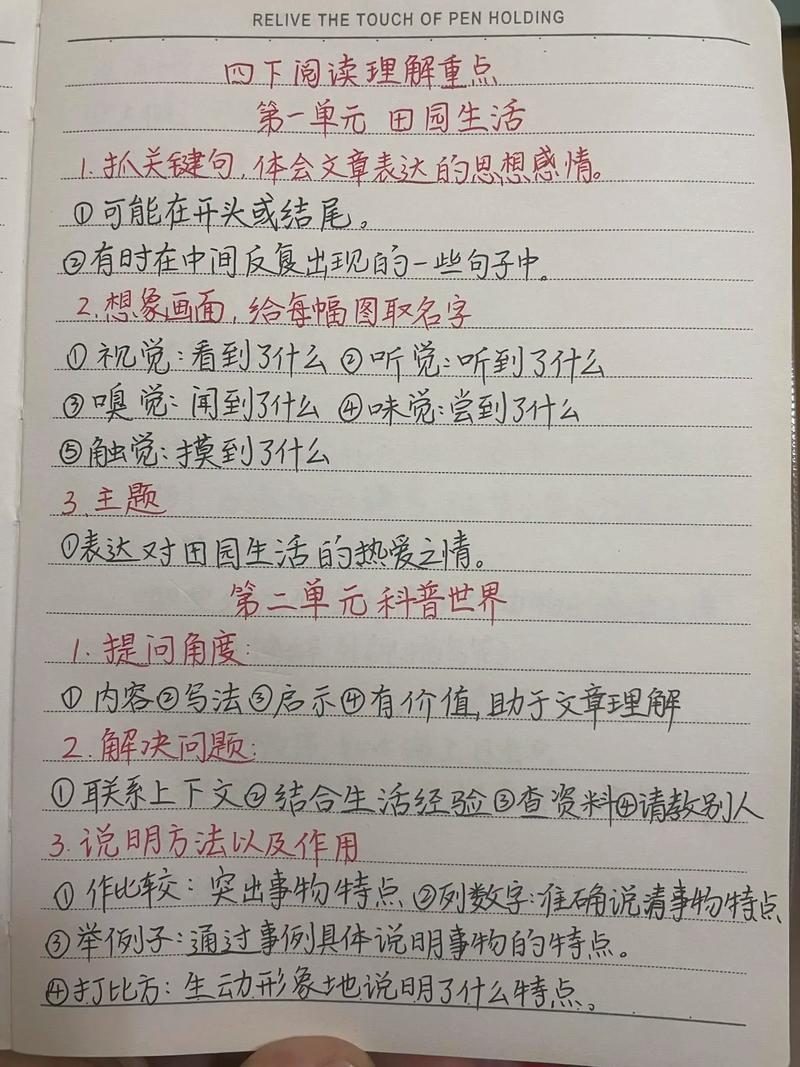 RELIVE THE TOUCH OF PEN HOLDING
四下阅读理解重点
第一单元 田园生活
1.抓关键句,体会文章表达的思想感情。
①可能在开头或结尾。
②有时在中间反复出现的一些句子中。
2.想象画面,给每幅图取名字
①视觉:看到了什么 ②听觉:听到了什么
③嗅觉:闻到了什么 ④味觉:尝到了什么
⑤触觉:摸到了什么
3.主题
①表达对田园生活的热爱之情。
第二单元 科普世界
1.提问角度:
①内容②写法③启示④有价值,助于文章理解
2.解决问题:
①联系上下文②结合生活经验③查资料④请教别人
3.说明方法以及作用
①作比较:突出事物特点 ②列数字:准确说清事物特点
③举例子:通过事例具体说明事物的特点。
④打比方:生动形象地说明了什么特点。